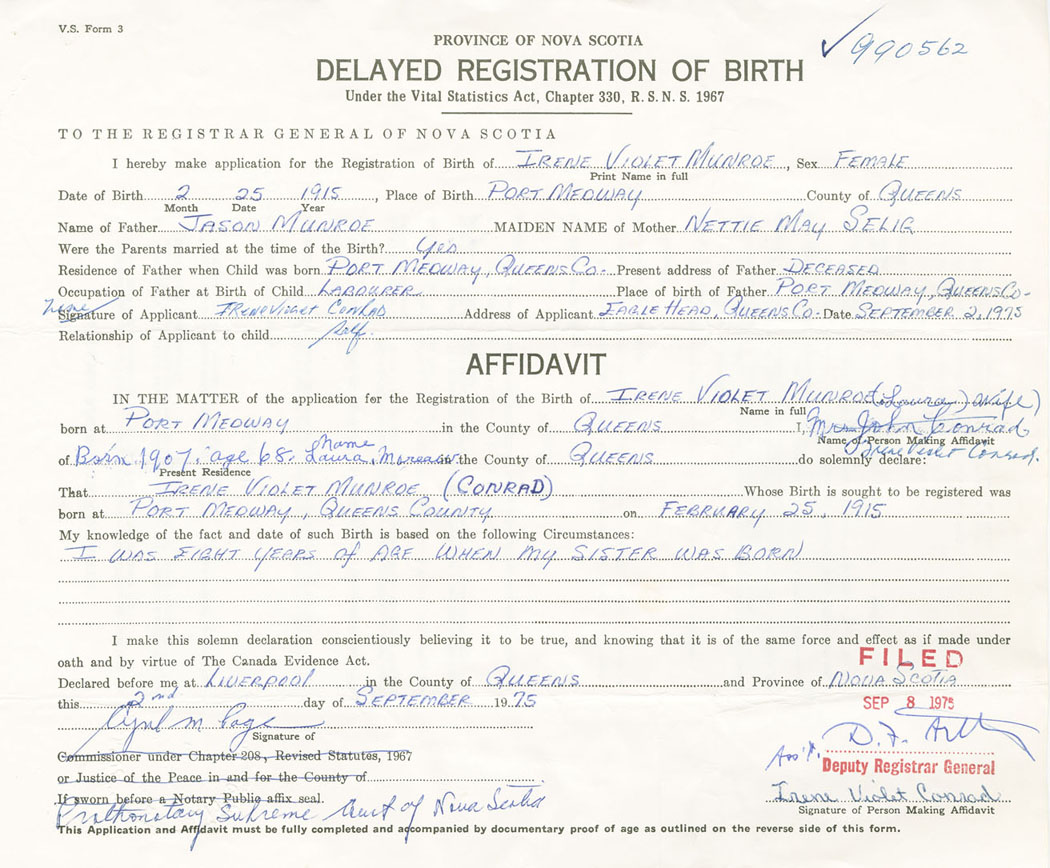 V.S. Form 3
990562
PROVINCE OF NOVA SCOTIA
DELAYED REGISTRATION OF BIRTH
Under the Vital Statistics Act, Chapter 330, R. S. N. S. 1967
TO THE REGISTRAR GENERAL OF NOVA SCOTIA
I hereby make application for the Registration of Birth of IRENE VIOLET MUNROE, Sex FEMALE
Print Name in full
Date of Birth 2 25 1915, Place of Birth PORT MEDWAY County of QUEENS
Month Date Year
Name of Father JASON MUNROE MAIDEN NAME of Mother NETTIE MAY SELIG
Were the Parents married at the time of the Birth? Yes
Residence of Father when Child was born PORT MEDWAY, QUEENS CO- Present address of Father DECEASED
Occupation of Father at Birth of Child LABOURER Place of birth of Father PORT MEDWAY, QUEENS CO-
Signature of Applicant IRENE VIOLET CONRAD Address of Applicant EAGLE HEAD, QUEENS CO- Date SEPTEMBER 2, 1975
Relationship of Applicant to child self.
AFFIDAVIT
IN THE MATTER of the application for the Registration of the Birth of IRENE VIOLET MUNROE (Laura) wife)
Name in full
born at PORT MEDWAY in the County of QUEENS I, Mrs. John Conrad
Name of Person Making Affidavit
of Born 1907. age 68. Name Laura, in the County of QUEENS do solemnly declare: Irene Violet Conrad.
Present Residence
That IRENE VIOLET MUNROE (CONRAD) Whose Birth is sought to be registered was
born at PORT MEDWAY, QUEENS COUNTY on FEBRUARY 25, 1915
My knowledge of the fact and date of such Birth is based on the following Circumstances:
I WAS EIGHT YEARS of AGE WHEN MY SISTER WAS BORN
I make this solemn declaration conscientiously believing it to be true, and knowing that it is of the same force and effect as if made under
oath and by virtue of The Canada Evidence Act.
FILED
Declared before me at LIVERPOOL in the County of QUEENS and Province of NOVA SCOTIA
this 2nd day of SEPTEMBER 1975
SEP 8 1975
Signature of
Commissioner under Chapter 208, Revised Statutes, 1967
D. F.
Ass't.
Deputy Registrar General
or Justice of the Peace in and for the County of
If sworn before a Notary Public affix seal.
Prothonotary Supreme Court of Nova Scotia
Irene Violet Conrad
Signature of Person Making Affidavit
This Application and Affidavit must be fully completed and accompanied by documentary proof of age as outlined on the reverse side of this form.